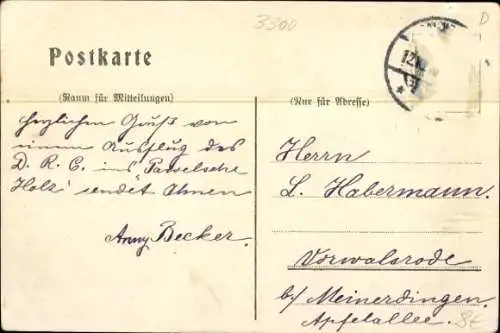 3300
D
Postkarte
(Raum für Mitteilungen)
herzlichen Gruß von
einem Ausflug des
D. R. C. ins "Passelsche
Holz" sendet Ihnen
Anny Becker.
(Nur für Adresse)
Herrn
L. Habermann.
Vorwalsrode
b/ Meinerdingen.
Apfelallee.
8€